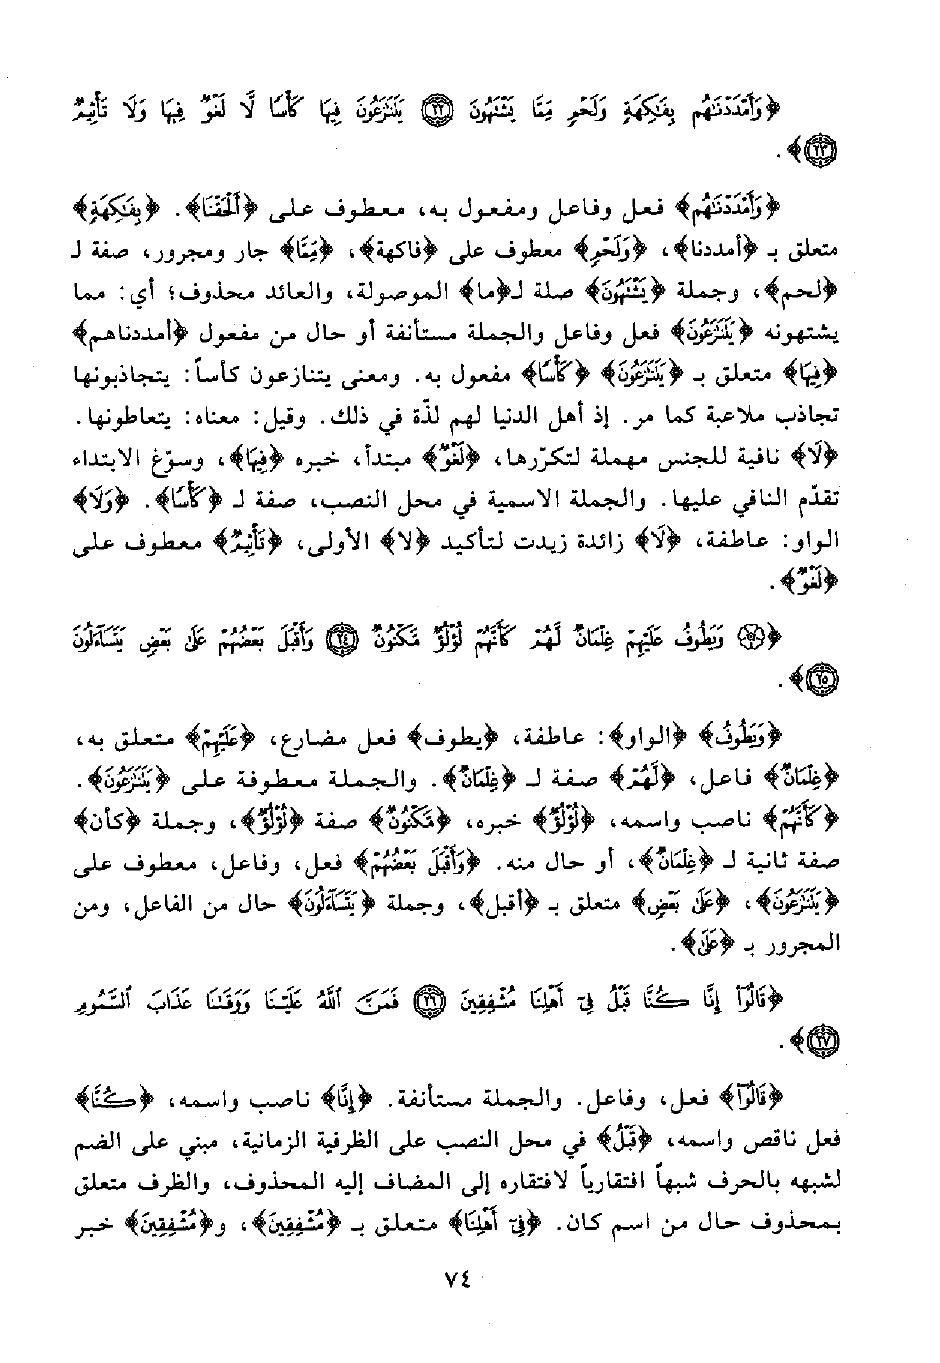 ﴿وَأَمْدَدْنَٰهُم بِفَٰكِهَةٍ وَلَحْمٍ مِّمَّا يَشْتَهُونَ ٢٢ يَتَنَٰزَعُونَ فِيهَا كَأْسًا لَّا لَغْوٌ فِيهَا وَلَا تَأْثِيمٌ
٢٣﴾.
﴿وَأَمْدَدْنَٰهُم﴾ فعل وفاعل ومفعول به، معطوف على ﴿أَلْحَقْنَا﴾. ﴿بِفَٰكِهَةٍ﴾
متعلق بـ ﴿أمددنا﴾، ﴿وَلَحْمٍ﴾ معطوف على ﴿فاكهة﴾، ﴿مِّمَّا﴾ جار ومجرور، صفة لـ
﴿لحم﴾، وجملة ﴿يَشْتَهُونَ﴾ صلة لـ﴿ما﴾ الموصولة، والعائد محذوف؛ أي: مما
يشتهونه ﴿يَتَنَٰزَعُونَ﴾ فعل وفاعل والجملة مستأنفة أو حال من مفعول ﴿أمددناهم﴾
﴿فِيهَا﴾ متعلق بـ ﴿يَتَنَٰزَعُونَ﴾ ﴿كَأْسًا﴾ مفعول به. ومعنى يتنازعون كأساً: يتجاذبونها
تجاذب ملاعبة كما مر. إذ أهل الدنيا لهم لذّة في ذلك. وقيل: معناه: يتعاطونها.
﴿لَا﴾ نافية للجنس مهملة لتكرّرها، ﴿لَغْوٌ﴾ مبتدأ، خبره ﴿فِيهَا﴾، وسوّغ الابتداء
تقدّم النافي عليها. والجملة الاسمية في محل النصب، صفة لـ ﴿كَأْسًا﴾. ﴿وَلَا﴾
الواو: عاطفة، ﴿لَا﴾ زائدة زيدت لتأكيد ﴿لا﴾ الأولى، ﴿تَأْثِيمٌ﴾ معطوف على
﴿لَغْوٌ﴾.
﴿۞ وَيَطُوفُ عَلَيْهِمْ غِلْمَانٌ لَّهُمْ كَأَنَّهُمْ لُؤْلُؤٌ مَّكْنُونٌ ٢٤ وَأَقْبَلَ بَعْضُهُمْ عَلَىٰ بَعْضٍ يَتَسَآءَلُونَ
٢٥﴾.
﴿وَيَطُوفُ﴾ ﴿الواو﴾: عاطفة، ﴿يطوف﴾ فعل مضارع، ﴿عَلَيْهِمْ﴾ متعلق به،
﴿غِلْمَانٌ﴾ فاعل، ﴿لَّهُمْ﴾ صفة لـ ﴿غِلْمَانٌ﴾. والجملة معطوفة على ﴿يَتَنَٰزَعُونَ﴾.
﴿كَأَنَّهُمْ﴾ ناصب واسمه، ﴿لُؤْلُؤٌ﴾ خبره، ﴿مَّكْنُونٌ﴾ صفة ﴿لُؤْلُؤٌ﴾، وجملة ﴿كأن﴾
صفة ثانية لـ ﴿غِلْمَانٌ﴾، أو حال منه. ﴿وَأَقْبَلَ بَعْضُهُمْ﴾ فعل، وفاعل، معطوف على
﴿يَتَنَٰزَعُونَ﴾، ﴿عَلَىٰ بَعْضٍ﴾ متعلق بـ ﴿أقبل﴾، وجملة ﴿يَتَسَآءَلُونَ﴾ حال من الفاعل، ومن
المجرور بـ ﴿عَلَىٰ﴾.
﴿قَالُوٓا۟ إِنَّا كُنَّا قَبْلُ فِىٓ أَهْلِنَا مُشْفِقِينَ ٢٦ فَمَنَّ ٱللَّهُ عَلَيْنَا وَوَقَىٰنَا عَذَابَ ٱلسَّمُومِ
٢٧﴾.
﴿قَالُوٓا۟﴾ فعل، وفاعل. والجملة مستأنفة. ﴿إِنَّا﴾ ناصب واسمه، ﴿كُنَّا﴾
فعل ناقص واسمه، ﴿قَبْلُ﴾ في محل النصب على الظرفية الزمانية، مبني على الضم
لشبهه بالحرف شبهاً افتقارياً لافتقاره إلى المضاف إليه المحذوف، والظرف متعلق
بمحذوف حال من اسم كان. ﴿فِىٓ أَهْلِنَا﴾ متعلق بـ ﴿مُشْفِقِينَ﴾، و﴿مُشْفِقِينَ﴾ خبر
٧٤